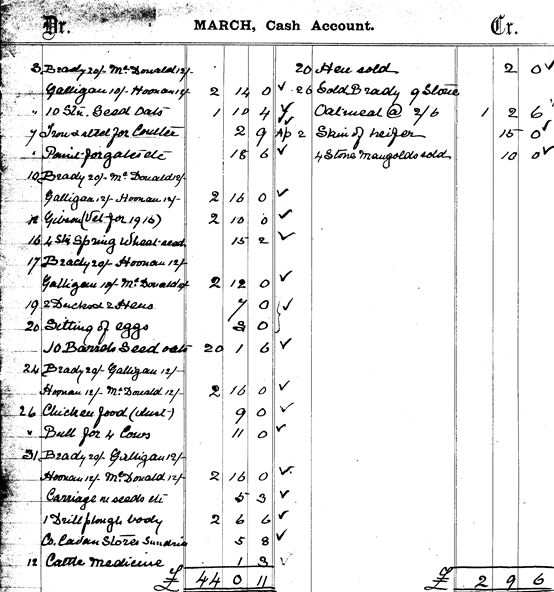 Dr. MARCH, Cash Account. Cr.
3 Brady 20/- McDonald 12/-
Galligan 10/- Hoonan 12/- 2 14 0 ✓
" 10 Stn. Seed Oats 1 10 4 ✓
7 Iron & steel for Coulter 2 9 ✓
" Paint for gates etc 18 6 ✓
10 Brady 20/- McDonald 12/-
Galligan 12/- Hoonan 12/- 2 16 0 ✓
Gibson (Vet for 1916) 2 10 0 ✓
16 4 Stn Spring Wheat seed 15 2 ✓
17 Brady 20/- Hoonan 12/-
Galligan 10/- McDonald 2 12 0 ✓
19 2 Ducks & 2 Hens 7 0 ✓
20 Sitting of eggs 3 0
10 Barrels Seed oats 20 1 6 ✓
24 Brady 20/- Galligan 12/-
Hoonan 12/- McDonald 12/- 2 16 0 ✓
26 Chicken food (dust) 9 0 ✓
" Bull for 4 Cows 11 0 ✓
31 Brady 20/- Galligan 12/-
Hoonan 12/- McDonald 12/- 2 16 0 ✓
Carriage on seeds etc 5 3 ✓
1 Drill plough body 2 6 6 ✓
Co. Cavan Stores Sundries 5 8 ✓
12 Cattle Medicine 1 3 ✓
£ 44 0 11
20 Hen sold 2 0 ✓
26 Sold Brady 9 Stone
Oatmeal @ 2/6 1 2 6 ✓
Ap 2 Skin of heifer 15 0 ✓
4 Stone Mangolds sold 10 0 ✓
£ 2 9 6